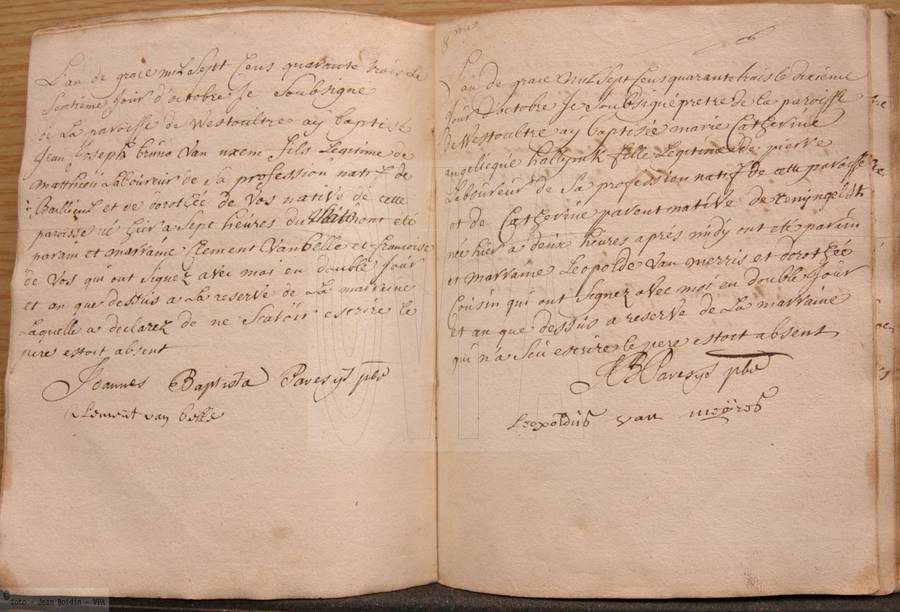 L'an de grace mil sept cens quarante trois le
septième jour d'octobre je soubsigné
de la paroisse de Westoultre ay baptisé
jean joseph bruno van naem fils legitime de
matthieu laboureur de sa profession natif de
Bailleul et de dorothée de vos native de cette
paroisse né hier a sept heures du matin ont eté
parain et marraine Clement Vanbelle et francoise
de Vos qui ont signez avec moi en double jour
et an que dessus a la reserve de la marraine
laquelle a declarez de ne scavoir escrire le
pere estoit absent
Joannes Baptista Paresys pbr
Clement van belle
8me
L'an de grace mil sept cens quarante trois le dixieme
jour d'octobre je soubsigné pretre de la paroisse
de Westoultre ay baptisée marie Catherine
angelicque hallynck fille legitime de pierre
laboureur de sa profession natif de cette paroisse
et de Catherine parent native de reninghelst
née hier a deux heures aprés midy ont eté parain
et marraine Leopolde van merris et dorothée
Cousin qui ont signez avec moi en double jour
et an que dessus a reserve de la marraine
qui n'a sçu escrire le pere estoit absent
JB Paresys pbr
Leopoldus van meires
© foto - Jean Boidin - VVA